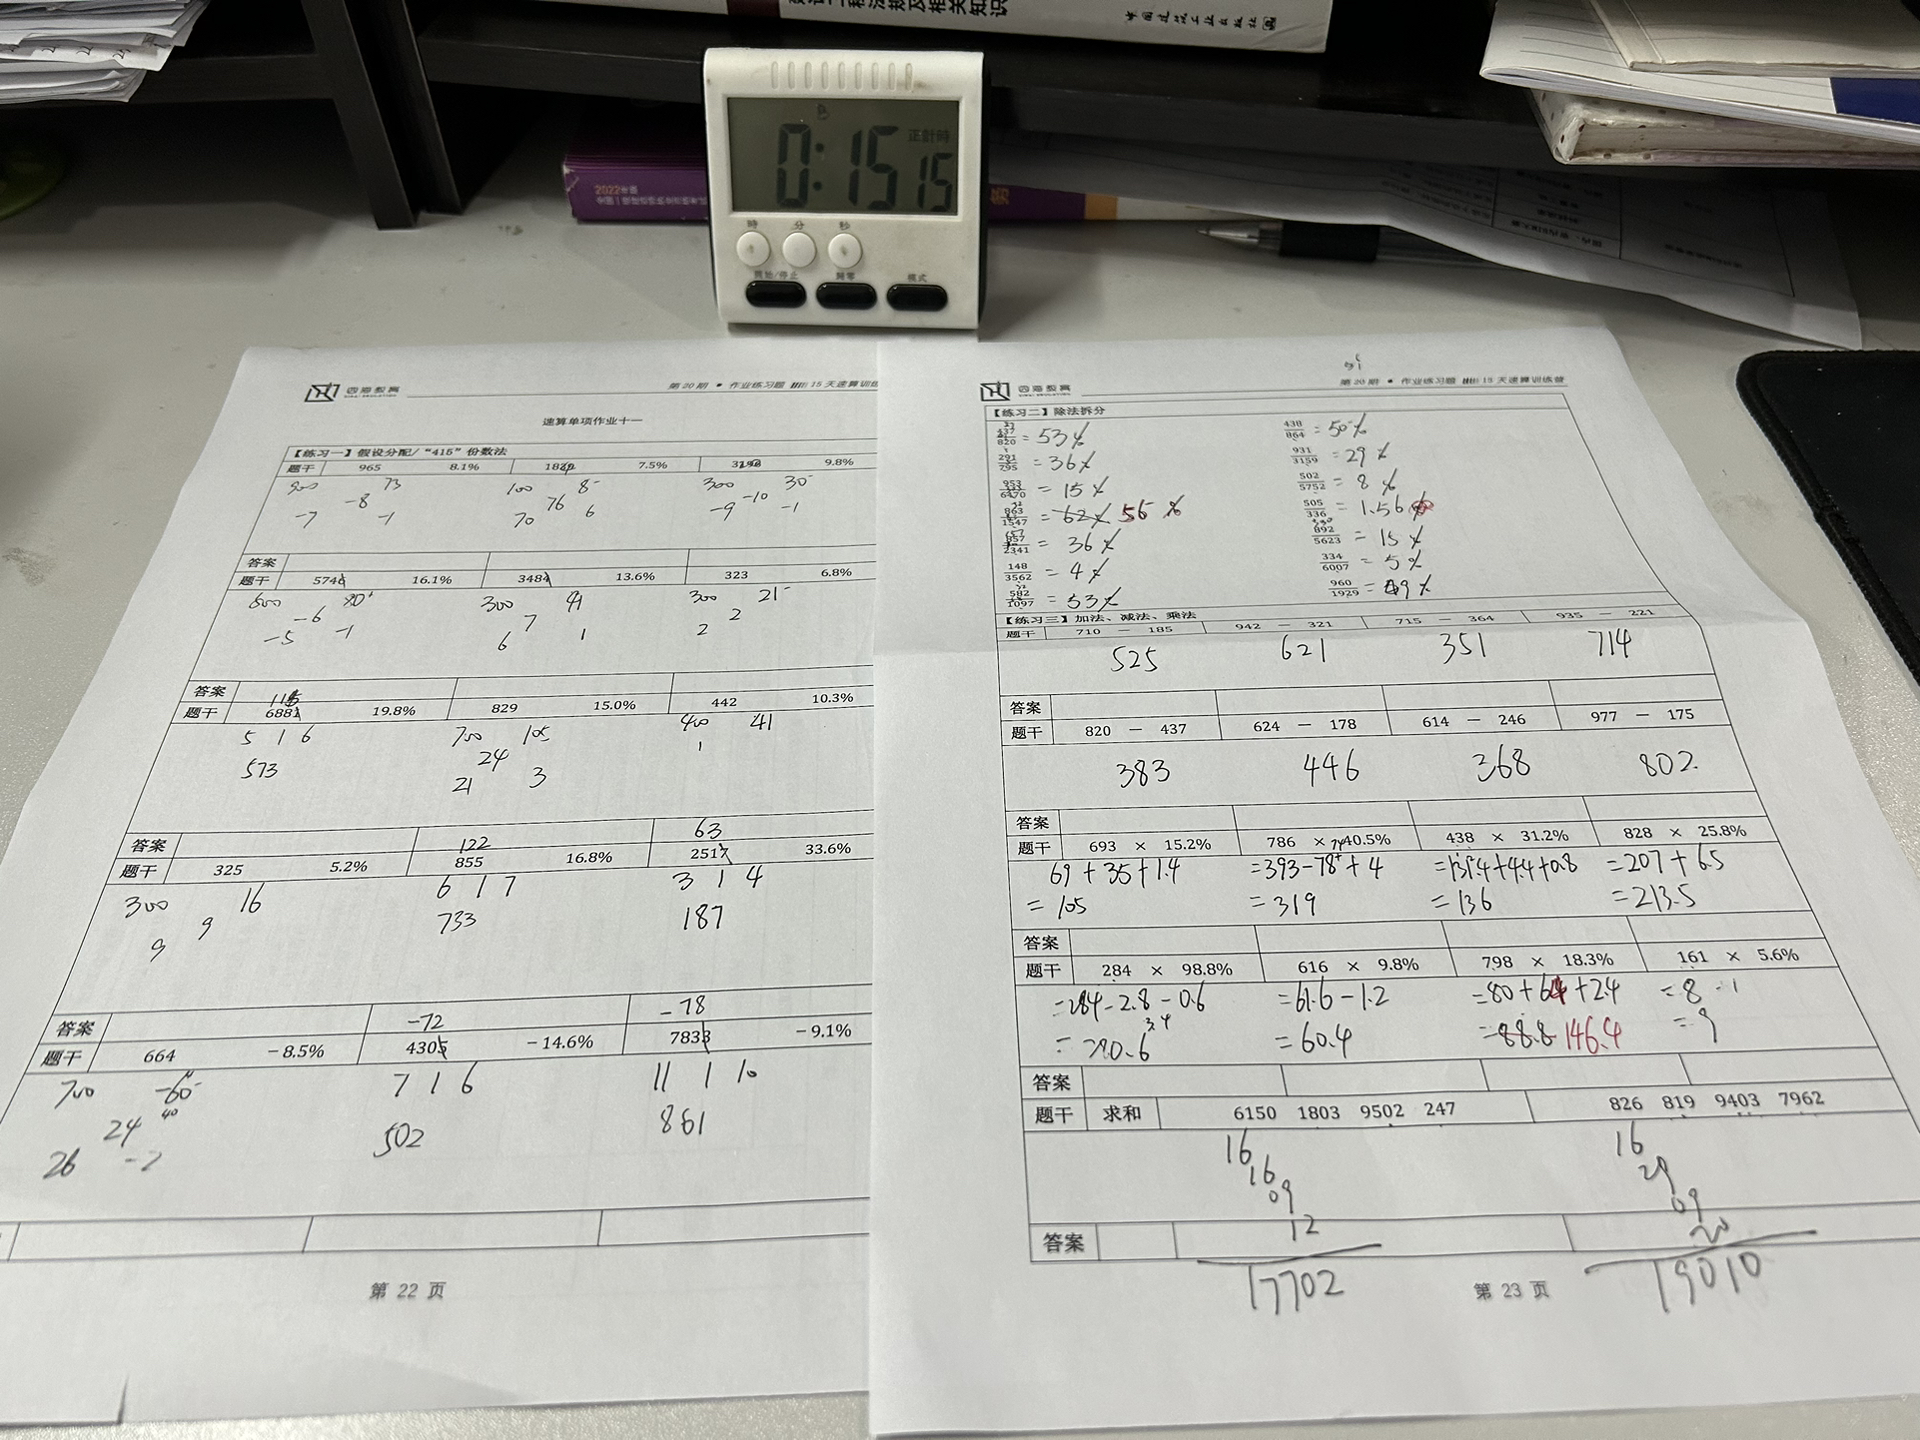 中国建筑工业出版社
正計時
0:15 15
2022年版
時 分 秒
開始/停止 歸零 模式
四海教育
第20期 • 作业练习题
速算单项作业十一
【练习一】假设分配/“415”份数法
题干 965 8.1% 7.5% 9.8%
900 73 100 8 300 30
-8 76 -10
-7 -1 70 6 -9 -1
答案
题干 5746 16.1% 3484 13.6% 323 6.8%
300 41 300 21
-6 7 2
-5 -1 6 1 2
答案
题干 6881 19.8% 829 15.0% 442 10.3%
5 1 6 700 105 400 41
573 24 1
21 3
答案 122 63
题干 325 5.2% 855 16.8% 2517 33.6%
300 16 6 1 7 3 1 4
9 733 187
9
答案 -72 -78
题干 664 -8.5% 4305 -14.6% 7833 -9.1%
700 -60 7 1 6 11 1 10
40
24 502 861
26 -2
第 22 页
四海教育
第20期 • 作业练习题 15天速算训练营
【练习二】除法拆分
437/820 = 53% 438/864 = 50%
291/795 = 36% 931/3159 = 29%
953/6470 = 15% 502/5752 = 8%
863/1547 = 62% 56% 505/336 = 1.56
857/2341 = 36% 892/5623 = 15%
148/3562 = 4% 334/6007 = 5%
582/1097 = 53% 960/1929 = 49%
【练习三】加法、减法、乘法
题干 710 — 185 942 — 321 715 — 364 935 — 221
525 621 351 714
答案
题干 820 — 437 624 — 178 614 — 246 977 — 175
383 446 368 802
答案
题干 693 × 15.2% 786 × 40.5% 438 × 31.2% 828 × 25.8%
69+35+1.4 =393-78+4 =131.4+4.4+0.8 =207+6.5
=105 =319 =136 =213.5
答案
题干 284 × 98.8% 616 × 9.8% 798 × 18.3% 161 × 5.6%
=284-2.8-0.6 =61.6-1.2 =80+64+2.4 =8
=280.6 =60.4 =88.8 146.4 =9
答案
题干 求和 6150 1803 9502 247 826 819 9403 7962
16 16
16 29
09 09
12 20
答案
17702 19010
第 23 页